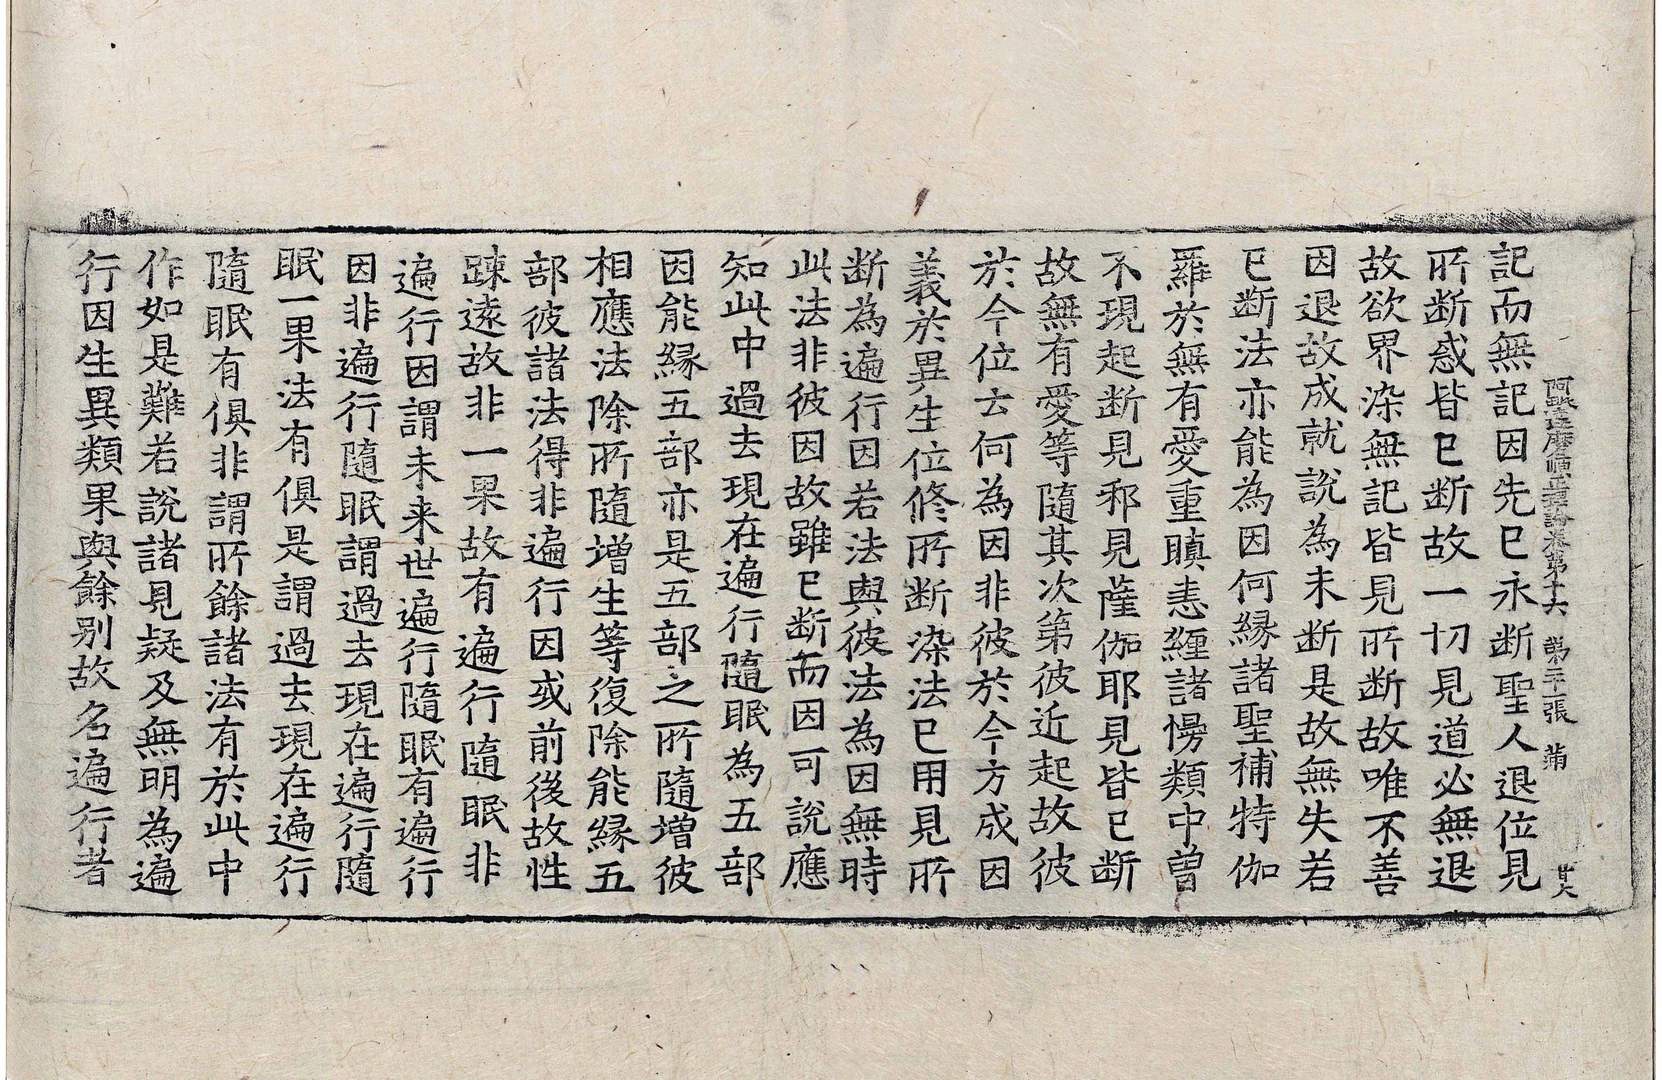 阿毗達磨順正理論卷第十六 第二十張 蒲
記而無記因先已永断聖人退位見
所断惑皆已断故一切見道必無退
故欲界染無記皆見所断故唯不善
因退故成就說為未断是故無失若
已断法亦能為因何縁諸聖補特伽
羅於無有愛重瞋恚纒諸慢類中曽
不現起断見邪見薩伽耶見皆已断
故無有愛等隨其次第彼近起故彼
於今位云何為因非彼於今方成因
義於異生位修所断染法已用見所
断為遍行因若法與彼法為因無時
此法非彼因故雖已断而因可說應
知此中過去現在遍行隨眠為五部
因能縁五部亦是五部之所隨增彼
相應法除所隨增生等復除能縁五
部彼諸法得非遍行因或前後故性
踈遠故非一果故有遍行隨眠非
遍行因謂未来世遍行隨眠有遍行
因非遍行隨眠謂過去現在遍行隨
眠一果法有俱是謂過去現在遍行
隨眠有俱非謂所餘諸法有於此中
作如是難若說諸見疑及無明為遍
行因生異類果與餘別故名遍行者